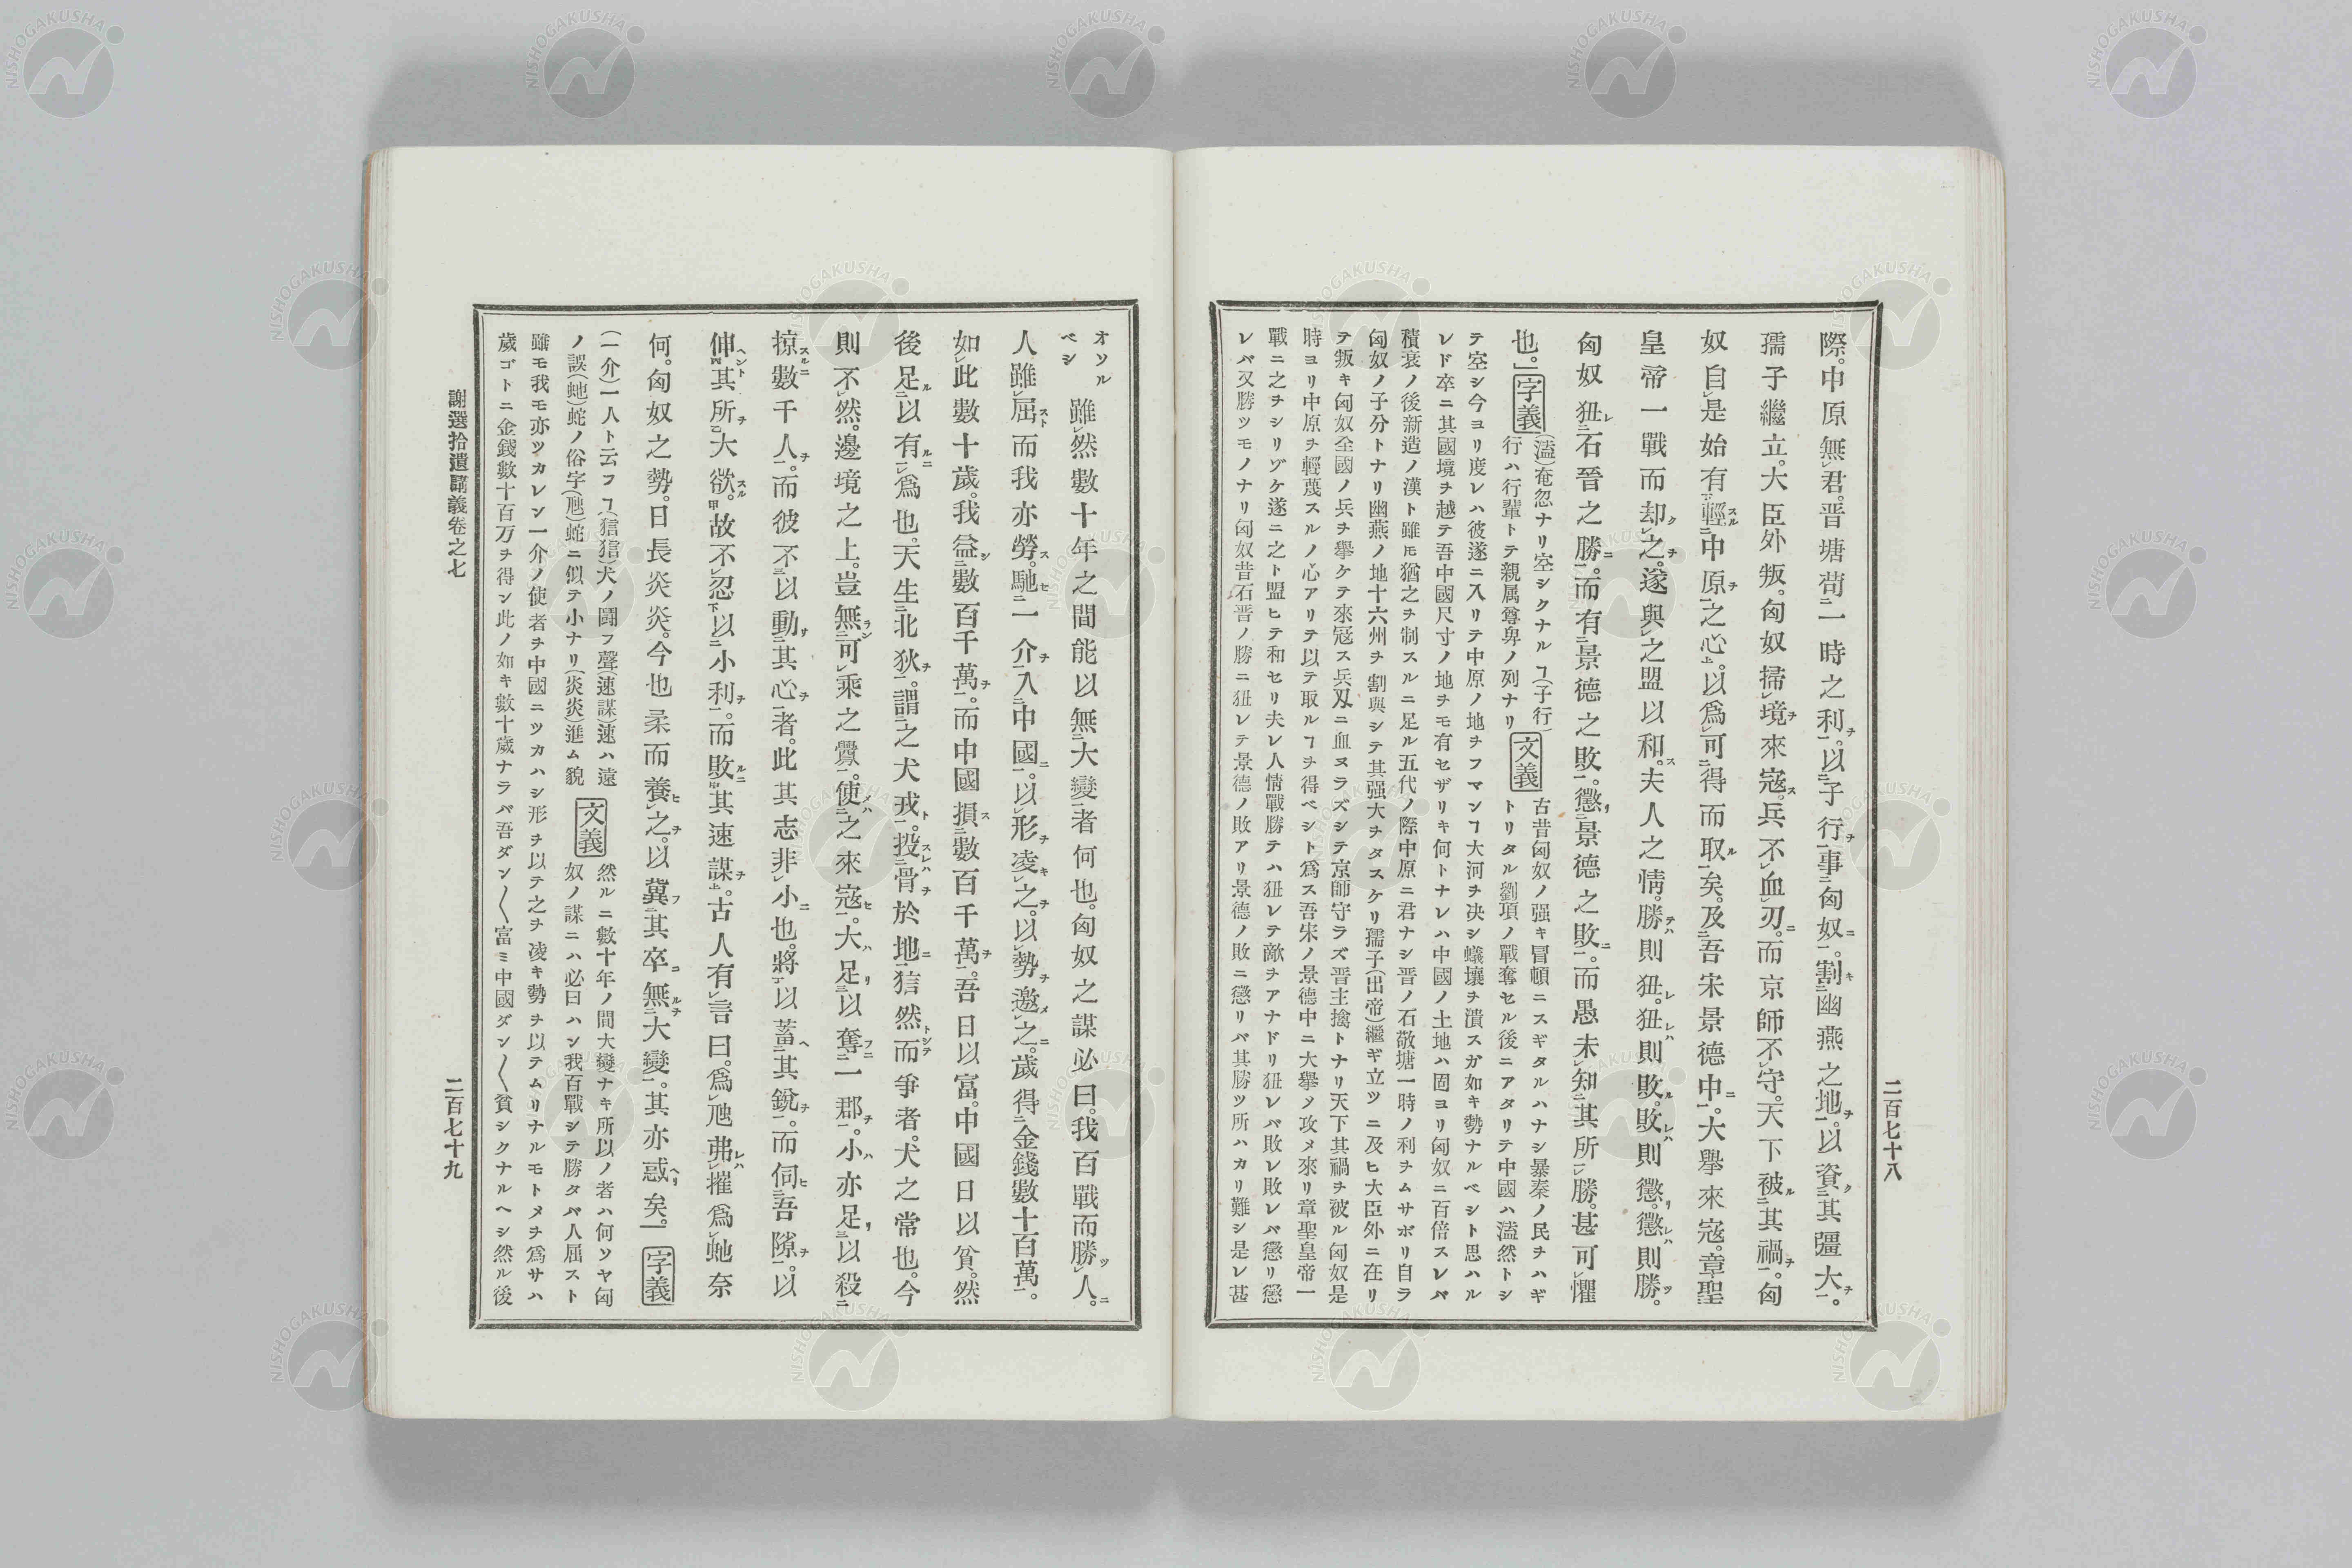 二百七十八
際。中原無君。晋塘苟一時之利。以子行事匈奴。割幽燕之地。以資其彊大。
孺子繼立。大臣外叛。匈奴掃境來寇。兵不血刃。而京師不守。天下被其禍。匈
奴自是始有輕中原之心。以爲可得而取矣。及吾宋景德中。大擧來寇。章聖
皇帝一戰而却之。遂與之盟以和。夫人之情。勝則狃。狃則敗。敗則懲。懲則勝。
匈奴狃石晉之勝。而有景德之敗。懲景德之敗。而愚未知其所勝。甚可懼
也。」字義(溘)奄忽ナリ空シクナルヿ(子行)
行ハ行輩トテ親属尊卑ノ列ナリ
文義古昔匈奴ノ强キ冒頓ニスギタルハナシ暴秦ノ民ヲハギ
トリタル劉項ノ戰奪セル後ニアタリテ中國ハ溘然トシ
テ空シ今ヨリ度レハ彼遂ニ入リテ中原ノ地ヲフマンヿ大河ヲ决シ蟻壤ヲ潰スガ如キ勢ナルベシト思ハル
レド卒ニ其國境ヲ越テ吾中國尺寸ノ地ヲモ有セザリキ何トナレハ中國ノ土地ハ固ヨリ匈奴ニ百倍スレバ
積衰ノ後新造ノ漢ト雖𪜈猶之ヲ制スルニ足ル五代ノ際中原ニ君ナシ晋ノ石敬塘一時ノ利ヲムサボリ自ラ
匈奴ノ子分トナリ幽燕ノ地十六州ヲ割與シテ其强大ヲタスケリ孺子(出帝)繼ギ立ツニ及ヒ大臣外ニ在リ
テ叛キ匈奴全國ノ兵ヲ擧ケテ來寇ス兵刄ニ血ヌラズシテ京師守ラズ晋主擒トナリ天下其禍ヲ被ル匈奴是
時ヨリ中原ヲ輕蔑スルノ心アリテ以テ取ルヿヲ得ベシト爲ス吾宋ノ景德中ニ大擧ソ攻メ來リ章聖皇帝一
戰ニ之ヲシリゾケ遂ニ之ト盟ヒテ和セリ夫レ人情戰勝テハ狃レテ敵ヲアナドリ狃レバ敗レ敗レバ懲リ懲
レバ又勝ツモノナリ匈奴昔石晋ノ勝ニ狃レテ景德ノ敗アリ景德ノ敗ニ懲リバ其勝ツ所ハカリ難シ是レ甚
オソル
ベシ
雖然數十年之間能以無大變者何也。匈奴之謀必曰。我百戰而勝人。
人雖屈而我亦勞。馳一介入中國。以形凌之。以勢邀之。歲得金錢數十百萬。
如此數十歲。我益數百千萬。而中國損數百千萬。吾日以富。中國日以貧。然
後足以有爲也。天生北狄。謂之犬戎。投骨於地。狺然而爭者。犬之常也。今
則不然。邊境之上。豈無可乘之釁。使之來寇。大足以奪一郡。小亦足以殺
掠數千人。而彼不以動其心者。此其志非小也。將以蓄其銳。而伺吾隙。以
伸其所大欲。故不忍以小利。而敗其速謀。古人有言曰。爲虺弗摧爲虵奈
何。匈奴之勢。日長炎炎。今也柔而養之。以冀其卒無大變。其亦惑矣。字義
(一介)一人ト云フヿ(狺狺)犬ノ鬪フ聲(速謀)速ハ遠
ノ誤(虵)蛇ノ俗字(虺)蛇ニ似テ小ナリ(炎炎)進ム貌
文義然ルニ數十年ノ間大變ナキ所以ノ者ハ何ソヤ匈
奴ノ謀ニハ必曰ハン我百戰シテ勝タバ人屈スト
雖モ我モ亦ツカレン一介ノ使者ヲ中國ニツカハシ形ヲ以テ之ヲ凌キ勢ヲ以テムリナルモトメヲ爲サハ
歲ゴトニ金錢數十百万ヲ得ン此ノ如キ數十歲ナラバ吾ダン〱富ミ中國ダン〱貧シクナルヘシ然ル後
謝選拾遺講義卷之七
二百七十九